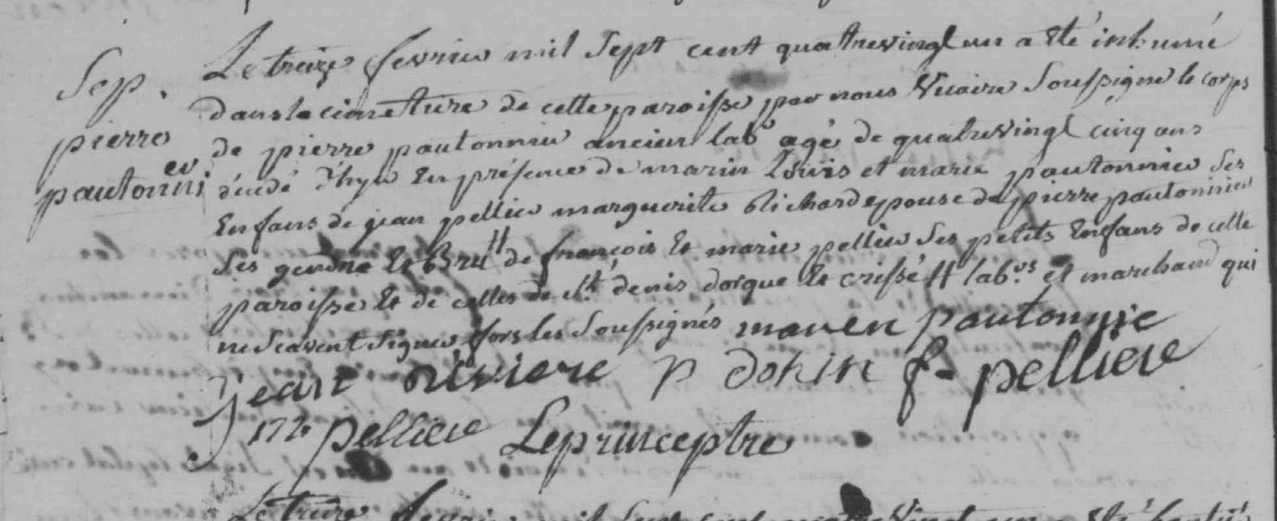 Sep.
pierre
pautonnier
Le treize fevrier mil Sept cent quatrevingt un a été inhumé
dans le cimeture de cette paroisse par nous Vicaire Soussigné le corps
de pierre pautonnier ancien labr agé de quatrevingt cinq ans
décédé d'hyer En présence de marin Louis et marie pautonnier Ses
Enfans de jean pellier marguerite Richard epouse de pierre pautonnier
Ses gendre Et Bru # de françois Et marie pellier Ses petits Enfans de cette
paroisse Et de celles de St denis dorque Et crissé # labrs et marchand qui
ne Scavent Signer fors les Soussignés maren pautonnie
jean riviere p dohin f. pelliere
pelliere Leprince ptre
Le treize fevrier mil Sept cent quatrevingt un a Eté